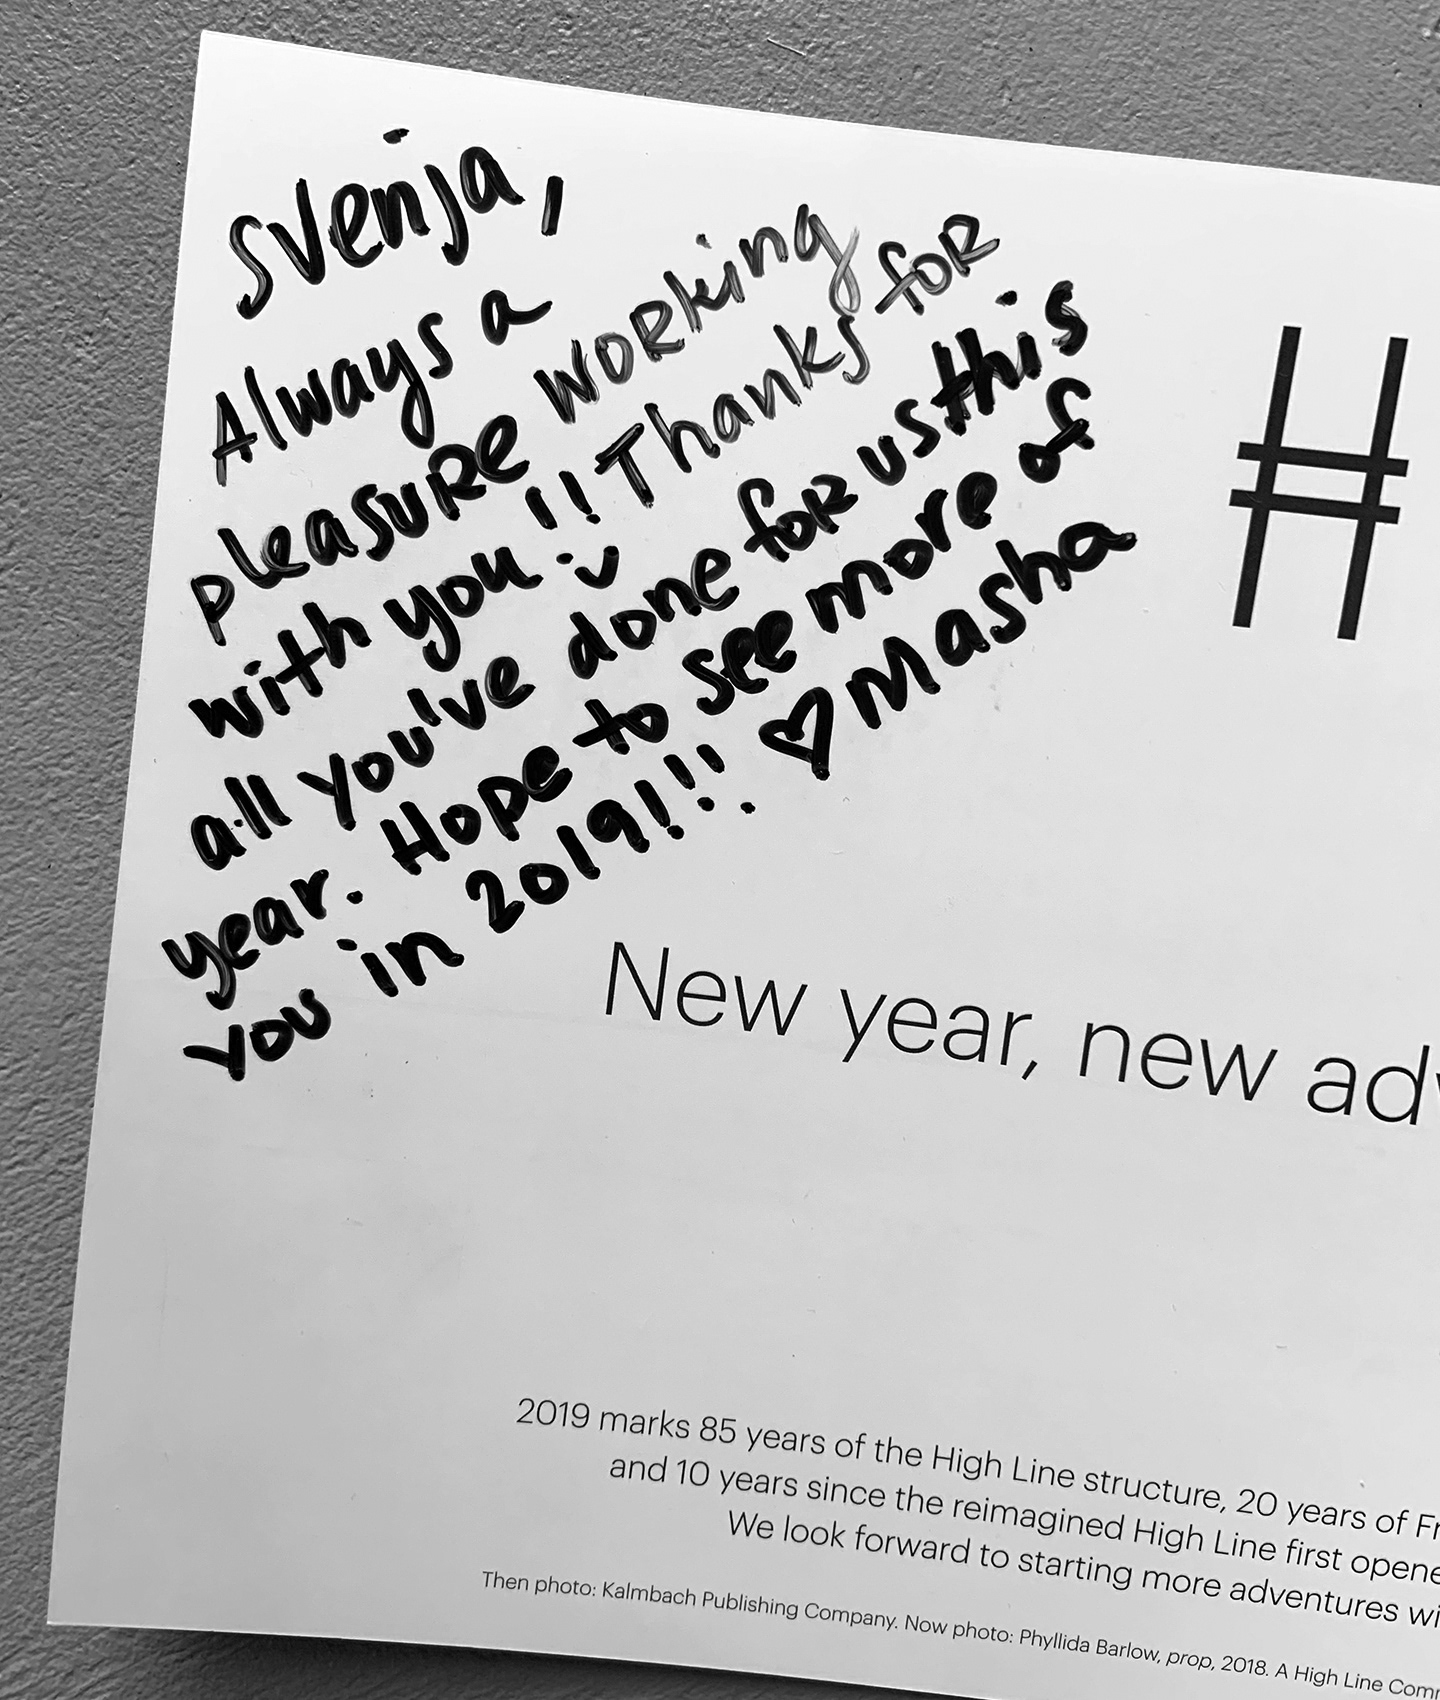 Svenja,
Always a
pleasure working
with you!! Thanks for
:)
all you've done for us this
year. Hope to see more of
you in 2019!!! ♡ Masha
New year, new adv
2019 marks 85 years of the High Line structure, 20 years of Fr
and 10 years since the reimagined High Line first opene
We look forward to starting more adventures wi
Then photo: Kalmbach Publishing Company. Now photo: Phyllida Barlow, prop, 2018. A High Line Comm